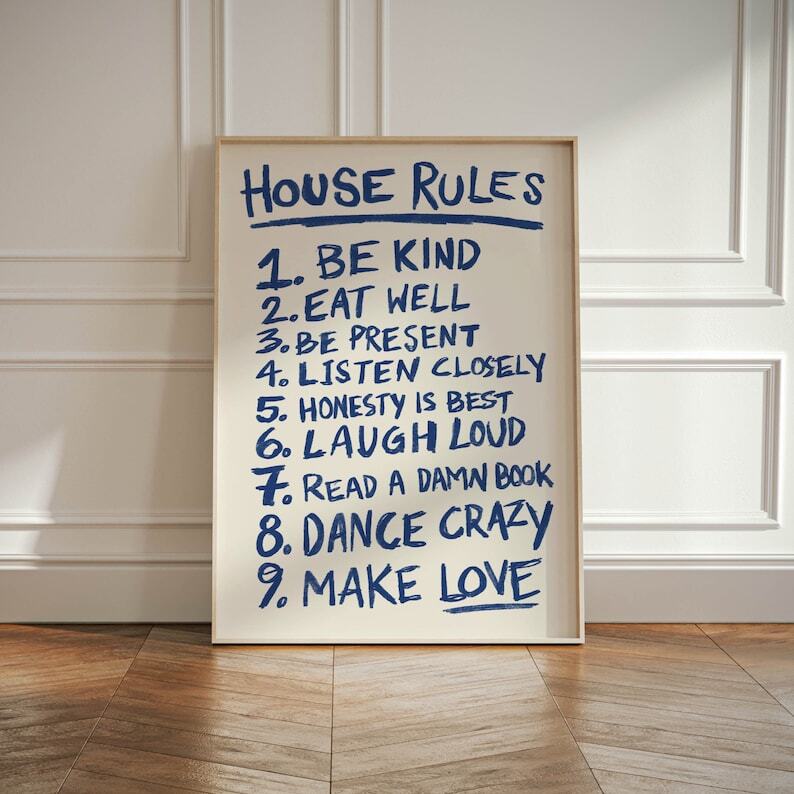 HOUSE RULES
1. BE KIND
2. EAT WELL
3. BE PRESENT
4. LISTEN CLOSELY
5. HONESTY IS BEST
6. LAUGH LOUD
7. READ A DAMN BOOK
8. DANCE CRAZY
9. MAKE LOVE